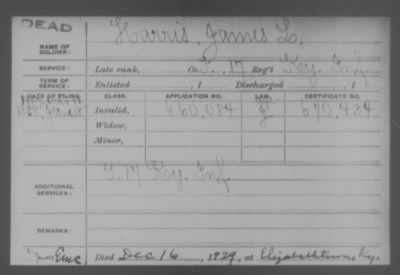 DEAD
Harris, James L.
NAME OF SOLDIER:
SERVICE: Late rank, Co. F, 17 Reg't Ky. Inf.
TERM OF SERVICE: Enlisted , 1 Discharged , 1
DATE OF FILING. CLASS. APPLICATION NO. LAW. CERTIFICATE NO.
Invalid, 660,024 670,484
Widow,
Minor,
ADDITIONAL SERVICES: 17 Ky. Inf.
REMARKS:
Died Dec 16, 1929, at Elizabethtown, Ky.